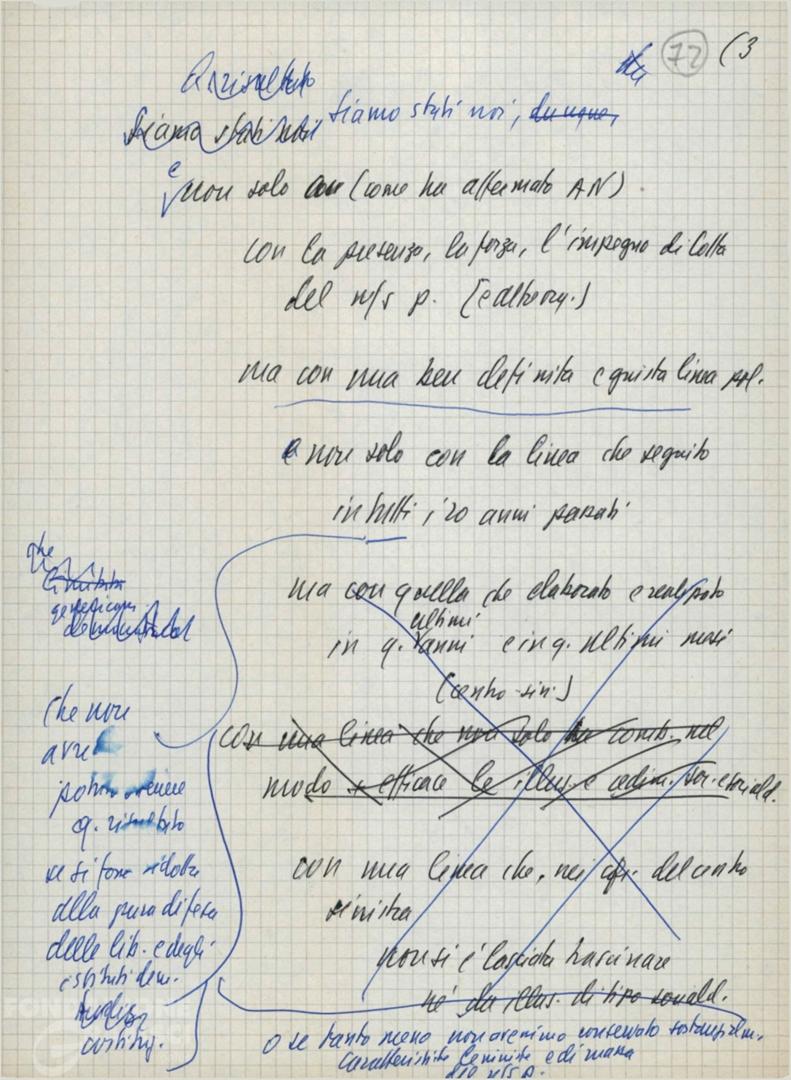 72 (3
A risultato
Siamo stati noi Siamo stati noi, dunque,
e non solo con (come ha affermato AN)
con la presenza, la forza, l'impegno di lotta
del n/s p.
ma con una ben definita e giusta linea pol.
e non solo con la linea che seguito
in tutti i 20 anni passati
ma con quella che elaborato e realizzato
in q. ultimi anni e in q. ultimi mesi
(centro-sin.)
con una linea che non solo ha comb. nel
modo + efficace le illus. e cedim. soc. e sociald.
con una linea che, nei cfr. del centro
sinistra
non si è lasciata trascinare
né da illus. di tipo sociald.
che
limitata
che non
avre
potuto ottenere
q. risultato
se si fosse ridotta
alla pura difesa
delle lib. e degli
istituti dem.
costituz.
o se tanto meno non avessimo conservato sostanzialm.
caratteristiche leniniste e di massa
del n/s p.